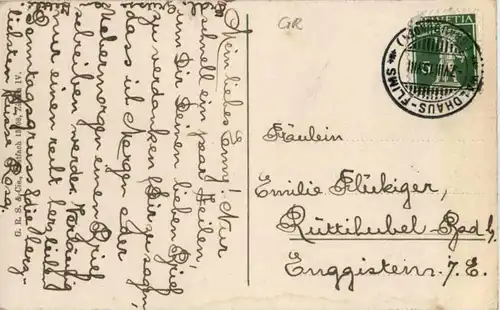 Mein liebes Emmy! Nur
schnell ein paar Zeilen
um Dir Deinen lieben Brief
zu verdanken & Dir zu sagen,
dass ich Morgen oder
Uebermorgen einen Brief
schreiben werde. Vorläufig
nur einen recht herzlichen
Sonntagsgruss & die herz-
lichsten Küsse Rosa.
G. R. S. & Cie.
GR
HELVETIA
WALDHAUS-FLIMS
Fräulein
Emilie Flükiger,
Rüttihubel-Bad
Enggistein i. E.